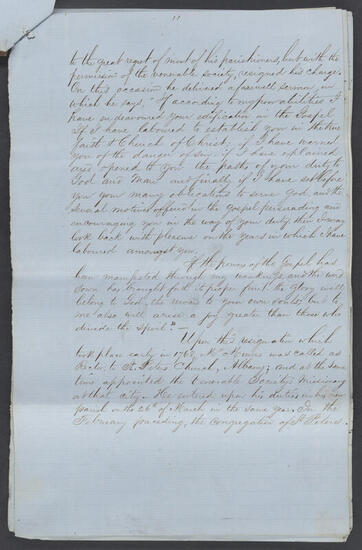 11
to the great regret of most of his parishioners, but with the
permission of the venerable society, resigned his charge.
On this occasion he delivered a farewell sermon, in
which he says, "If according to my poor abilities I
have endeavoured your edification in the Gospel
if I have laboured to establish you in the true
faith & Church of Christ; if I have warned
you of the danger of sin; if I have explained
and opened to you the paths of your duty to
God and man and finally if I have set before
you your many obligations to serve God, and the
several motives offered in the gospel persuading and
encouraging you in the way of your duty; then I may
look back with pleasure on the years in which I have
laboured amongst you.
If the power of the Gospel has
been manifested through my weakness, and the word
sown has brought forth its proper fruit the Glory will
belong to God, the reward to your own souls; but to
me also will arise a joy greater than theirs who
divide the spoil." —
Upon this resignation which
took place early in 1768, Mr Munro was called as
Rector to St. Peters Church, Albany; and at the same
time appointed the Venerable Society's Missionary
at that city. He entered upon his duties in his new
parish on the 26th of March in the same year. In the
February preceding, the congregation of St Peters